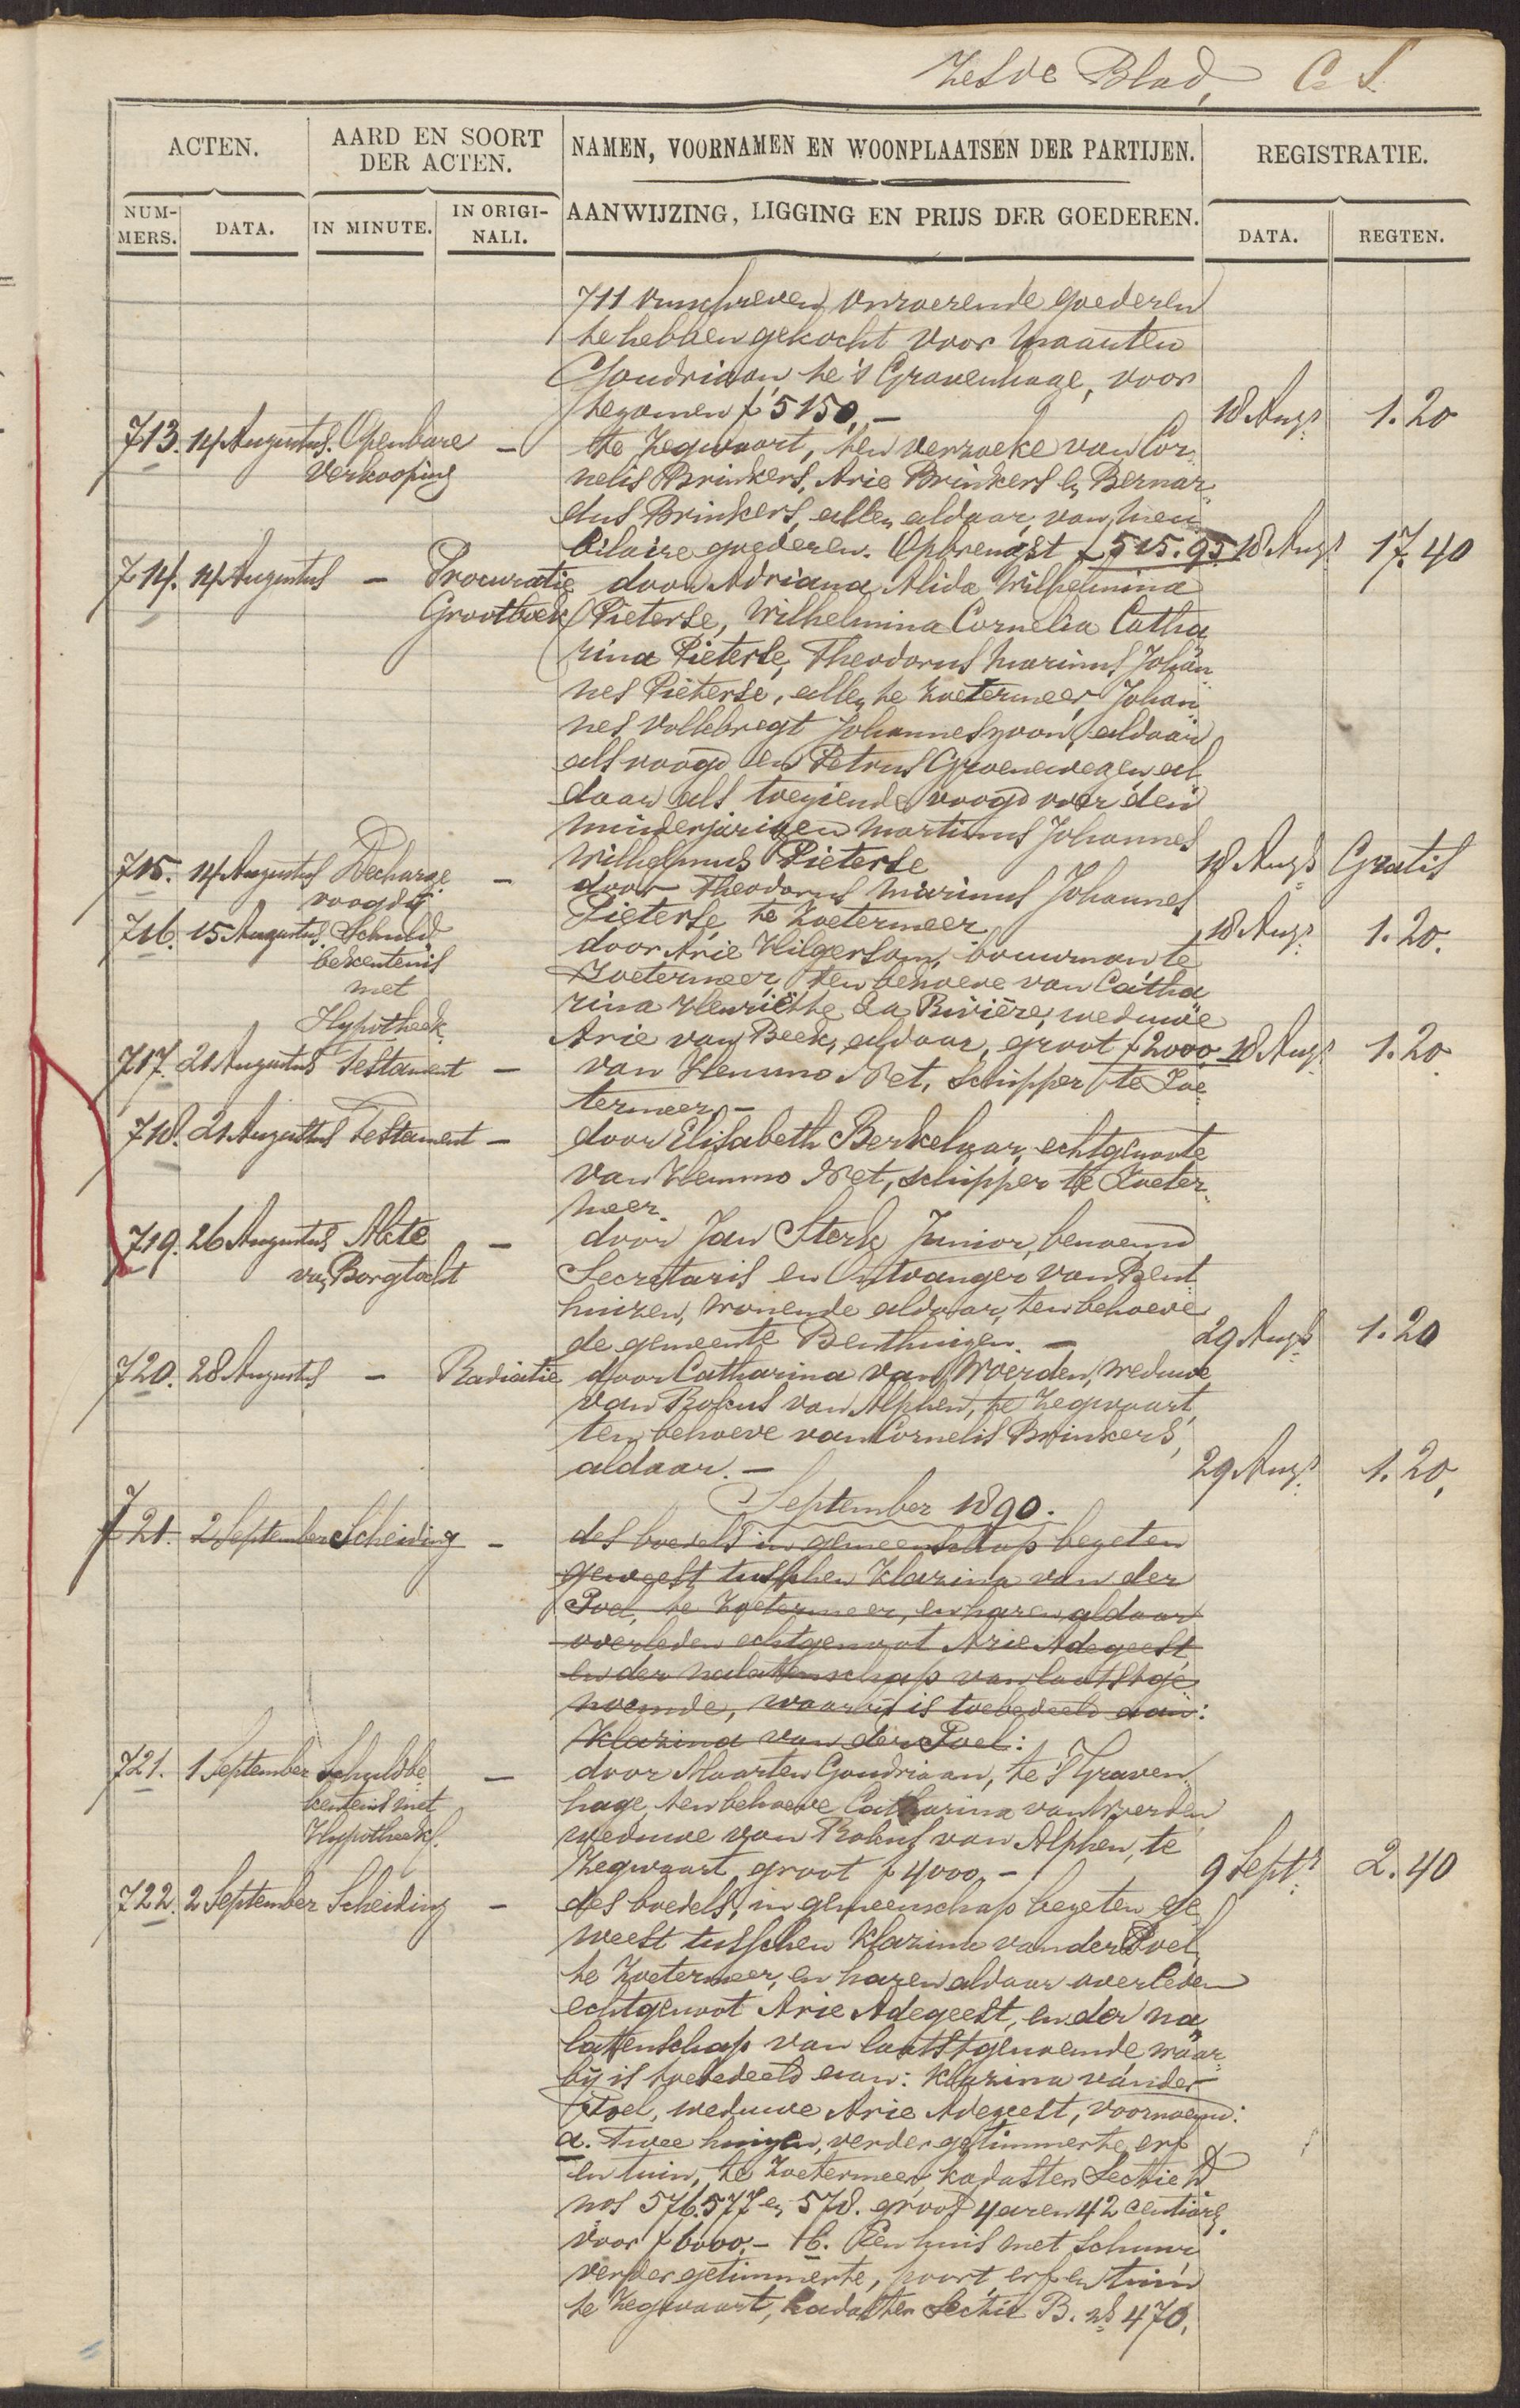 Zesde Blad, C. S.
ACTEN. AARD EN SOORT DER ACTEN. NAMEN, VOORNAMEN EN WOONPLAATSEN DER PARTIJEN. REGISTRATIE.
NUM-MERS. DATA. IN MINUTE. IN ORIGI-NALI. AANWIJZING, LIGGING EN PRIJS DER GOEDEREN. DATA. REGTEN.
711 omschreven onroerende goederen
te hebben gekocht voor Maarten
Goudriaan te 's Gravenhage, voor
tezamen f 5150,- 18 Augs 1.20
713. 14 Augustus. Openbare - te Zegwaart, ten verzoeke van Cor
Verkooping nelis Brinkers, Arie Brinkers en Bernar
dus Brinkers, allen aldaar, van meu
bilaire goederen. Opbrengst f 515.95 18 Augs 17.40
714. 14 Augustus - Procuratie door Adriana Alida Wilhelmina
Grootboek Pieterse, Wilhelmina Cornelia Catha
rina Pieterse, Theodorus Marinus Johan
nes Pieterse, allen te Zoetermeer, Johan
nes Vollebregt Johanneszoon, aldaar
als voogd en Petrus Groenewegen al
daar als toeziende voogd over den
minderjarigen Martinus Johannes
Wilhelmus Pieterse 18 Augs Gratis
715. 14 Augustus Decharge - door Theodorus Marinus Johannes
voogdij Pieterse te Zoetermeer 18 Augs 1.20.
716. 15 Augustus. Schuld door Arie Hilgersom, bouwman te
bekentenis Zoetermeer, ten behoeve van Catha
met rina Henriëtte La Rivière, weduwe
Hypotheek Arie van Beek, aldaar, groot f 2000 18 Augs 1.20.
717. 21 Augustus Testament - van Hemmo Net, schipper te Zoe
termeer. -
718. 21 Augustus Testament - door Elisabeth Berkelaar, echtgenoote
van Hemmo Net, schipper te Zoeter
meer.
719. 26 Augustus Akte - door Jan Sterk Junior, benoemd
van Borgtocht Secretaris en Ontvanger van Bent
huizen, wonende aldaar, ten behoeve
de gemeente Benthuizen. - 29 Augs 1.20
720. 28 Augustus - Radiatie door Catharina van Woerden, weduwe
van Rokus van Alphen, te Zegwaart,
ten behoeve van Cornelis Brinkers,
aldaar. - 29 Augs 1.20,
September 1890.
721. 2 September Scheiding - des boedels in gemeenschap bezeten
geweest tusschen Klazina van der
Poel, te Zoetermeer, en haren aldaar
overleden echtgenoot Arie Adegeest,
en der nalatenschap van laatstge
noemde, waarbij is toebedeeld aan:
Klazina van der Poel:
721. 1 September Schuldbe - door Maarten Goudriaan, te 's Graven
kentenis met hage, ten behoeve Catharina van Woerden,
Hypotheek. weduwe van Rokus van Alphen, te
Zegwaart, groot f 4000,- 9 Septr 2.40
722. 2 September Scheiding - des boedels, in gemeenschap bezeten ge
weest tusschen Klazina van der Poel,
te Zoetermeer, en haren aldaar overleden
echtgenoot Arie Adegeest, en der na
latenschap van laatstgenoemde waar
bij is toebedeeld aan: Klazina van der
Poel, weduwe Arie Adegeest, voornoemd:
a. Twee huizen, verder getimmerte, erf
en tuin, te Zoetermeer, kadaster Sectie D
nos 576.577 en 578. groot 4 aren 42 centiaren
voor f 6000,- b. Een huis met schuur,
verder getimmerte, poort, erf en tuin
te Zegwaart, kadaster Sectie B. no 470,